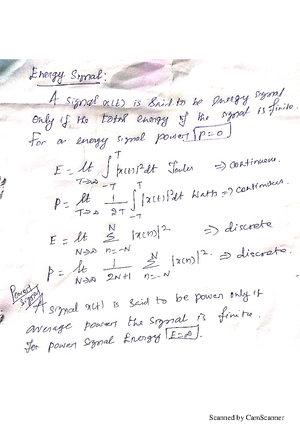 Energy Signal:
A signal x(t) is said to be energy signal
only if the total energy of the signal is finite.
For a energy signal power P=0
E = lt T→∞ ∫_{-T}^{T} |x(t)|²dt Joules ⇒ continuous.
P = lt T→∞ 1/2T ∫_{-T}^{T} |x(t)|²dt Watts ⇒ continuous.
E = lt N→∞ Σ_{n=-N}^{N} |x(n)|² ⇒ discrete
P = lt N→∞ 1/2N+1 Σ_{n=-N}^{N} |x(n)|² ⇒ discrete.
Power Signal
A signal x(t) is said to be power only if
average power the signal is finite.
for power signal Energy E=∞.
Scanned by CamScanner